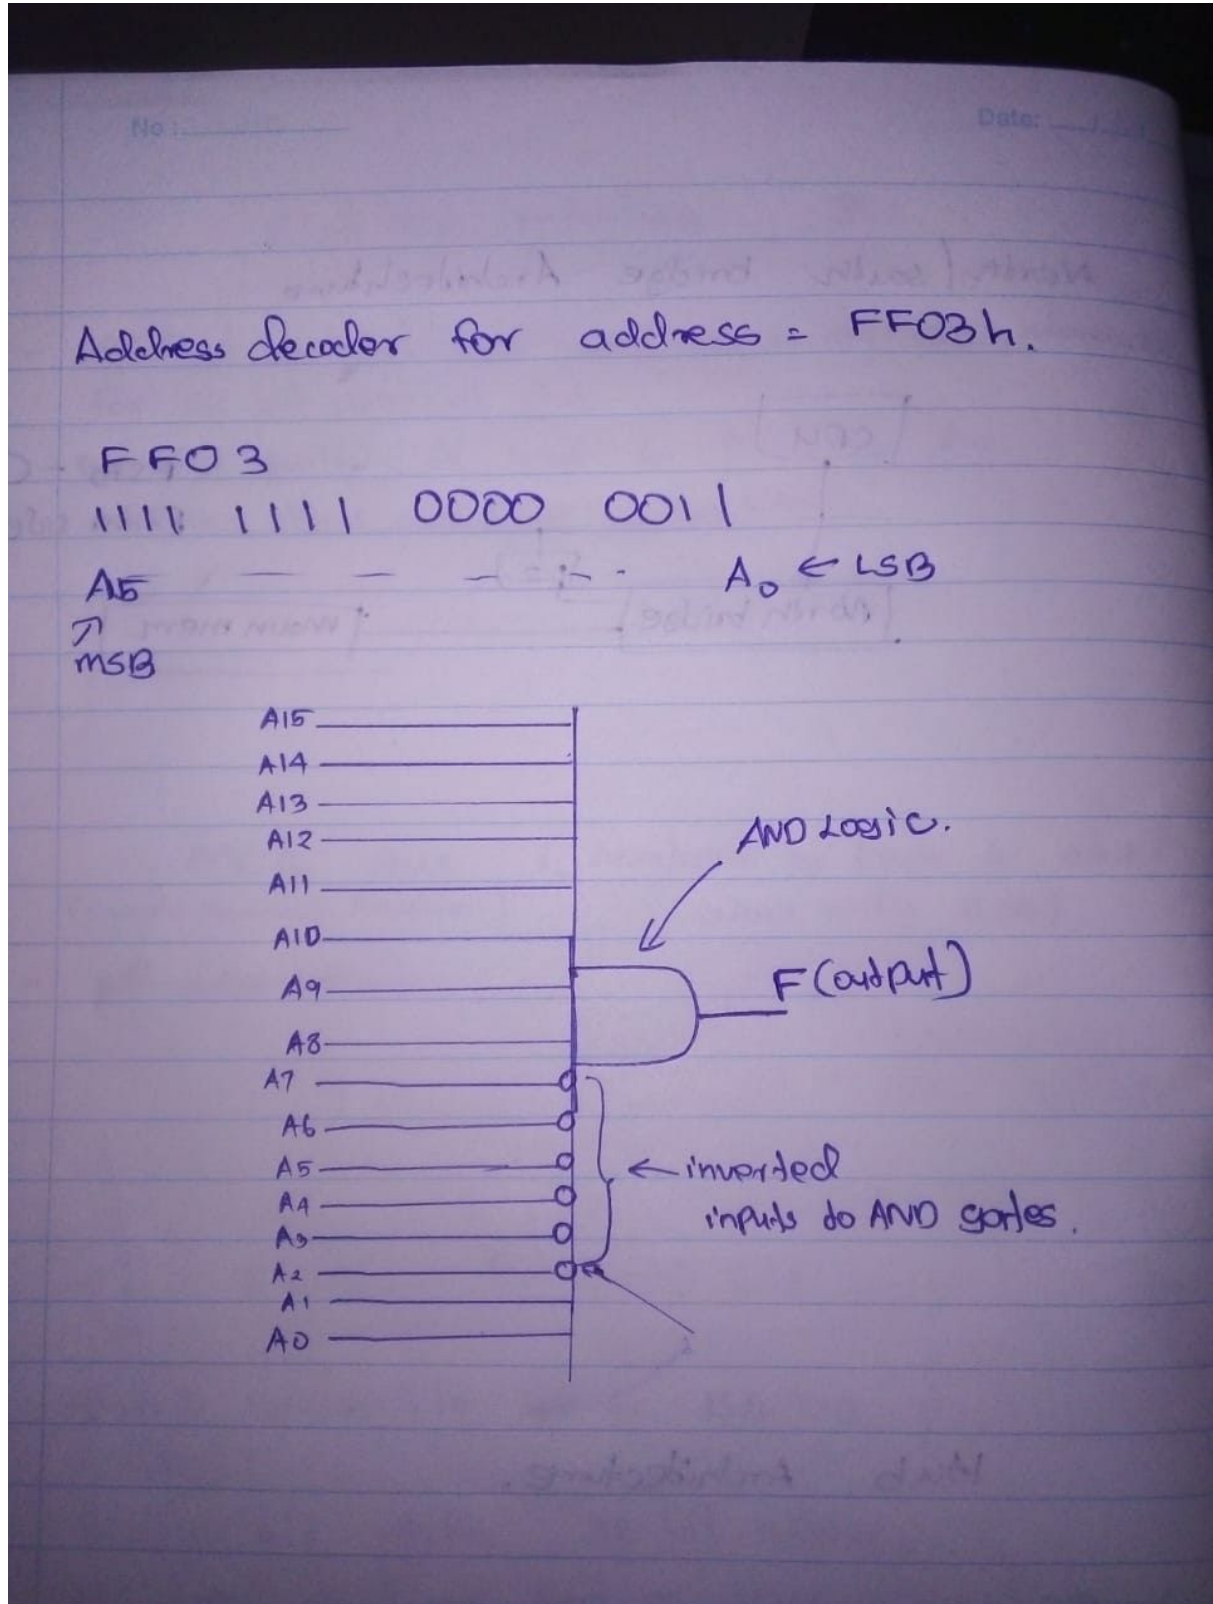 No :
Date:
Address decoder for address = FF03h.
F F 0 3
1111 1111 0000 0011
A15 - - - - - A0 ← LSB
MSB
A15
A14
A13
A12
A11
A10
A9
A8
A7
A6
A5
A4
A3
A2
A1
A0
AND Logic.
F(output)
← inverted
inputs to AND gates.